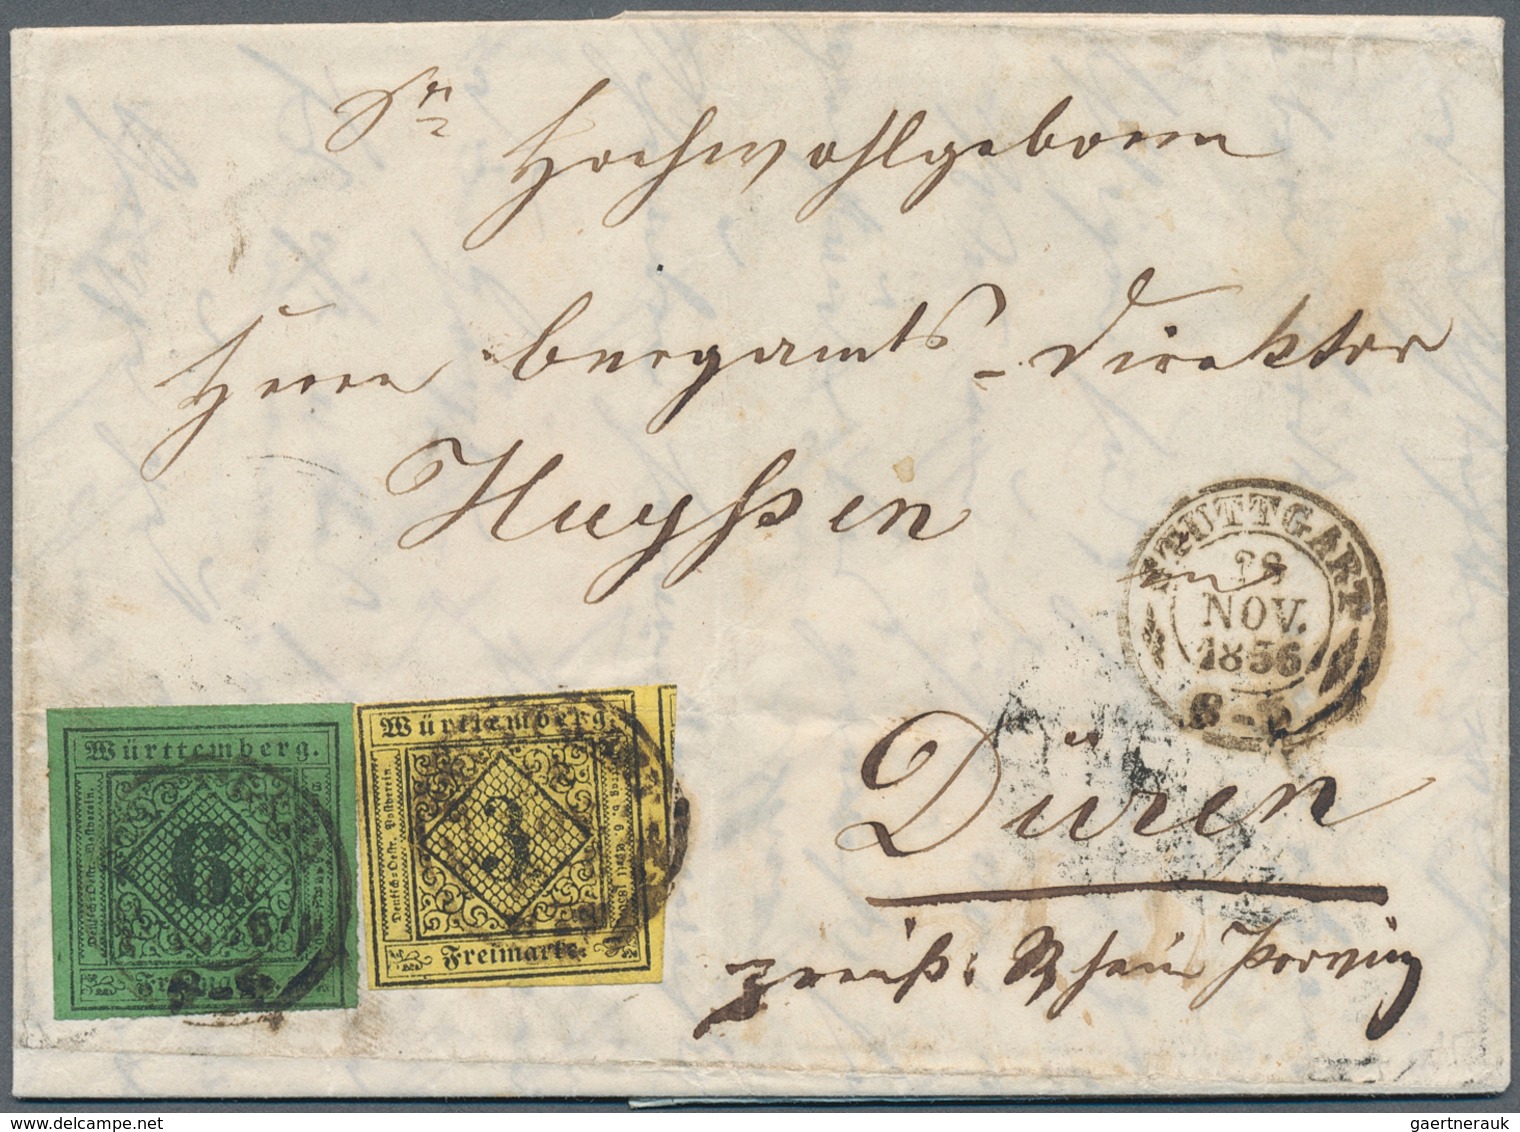 Sr
Hochwohlgeboren
Herrn Bergamts-Direktor
Huyssen
in
Düren
preuß: Rhein Provinz
STUTTGART
28
NOV.
1856
Württemberg.
Deutsch-Oestr. Postverein.
6
Freimarke.
Württemberg.
Deutsch-Oestr. Postverein.
Vertr. v. 6 April 1850.
3
Freimarke.
gaertnerauk